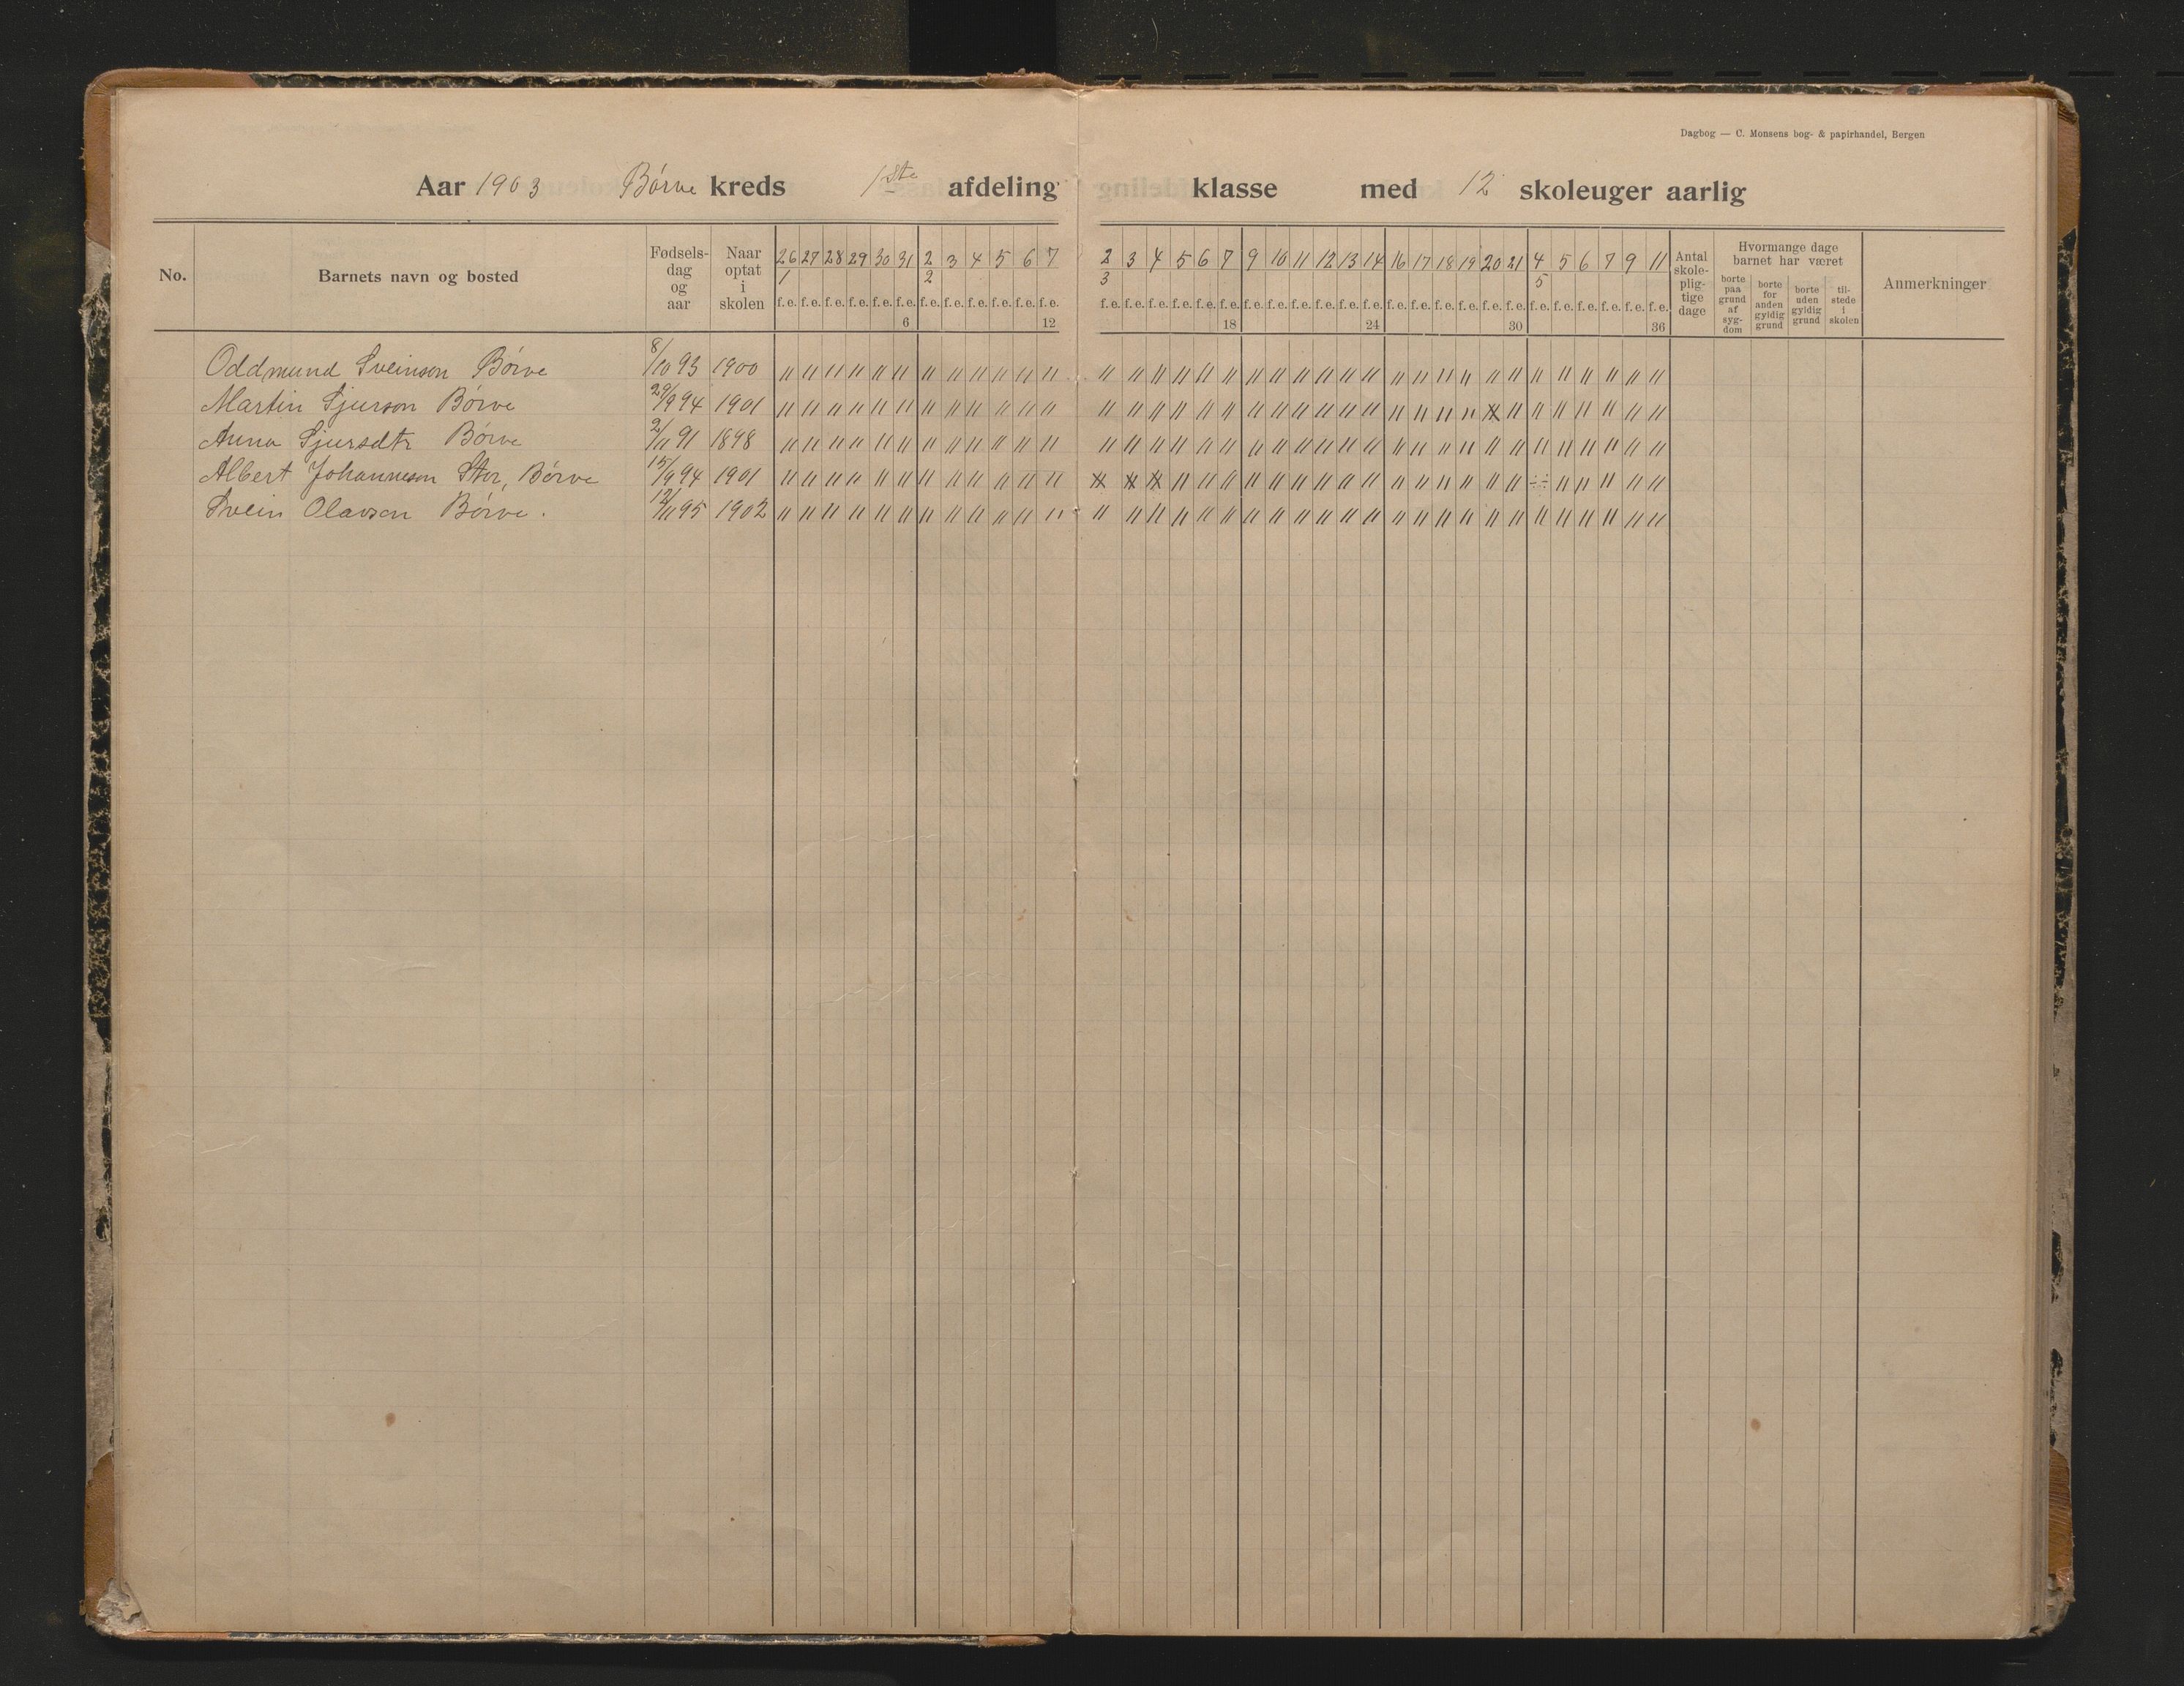 Dagbog — C. Monsens bog- & papirhandel, Bergen
Aar 1903 Børve kreds 1ste afdeling klasse med 12 skoleuger aarlig
No. Barnets navn og bosted Fødsels-dag og aar Naar optat i skolen 26 27 28 29 30 31 2 3 4 5 6 7 2 3 4 5 6 7 9 10 11 12 13 14 16 17 18 19 20 21 4 5 6 7 9 11 Antal skole-plig-tige dage Hvormange dage barnet har været Anmerkninger
1 2 3 5
borte paa grund af syg-dom borte for anden gyldig grund borte uden gyldig grund til-stede i skolen
f.e. f.e. f.e. f.e. f.e. f.e. f.e. f.e. f.e. f.e. f.e. f.e. f.e. f.e. f.e. f.e. f.e. f.e. f.e. f.e. f.e. f.e. f.e. f.e. f.e. f.e. f.e. f.e. f.e. f.e. f.e. f.e. f.e. f.e. f.e. f.e.
6 12 18 24 30 36
Oddmund Sveinson Børve 8/10 93 1900
Martin Sjurson Børve 29/9 94 1901
Anna Sjursdtr Børve 2/11 91 1898
Albert Johanneson Stor, Børve 15/9 94 1901
Svein Olavson Børve. 12/11 95 1902